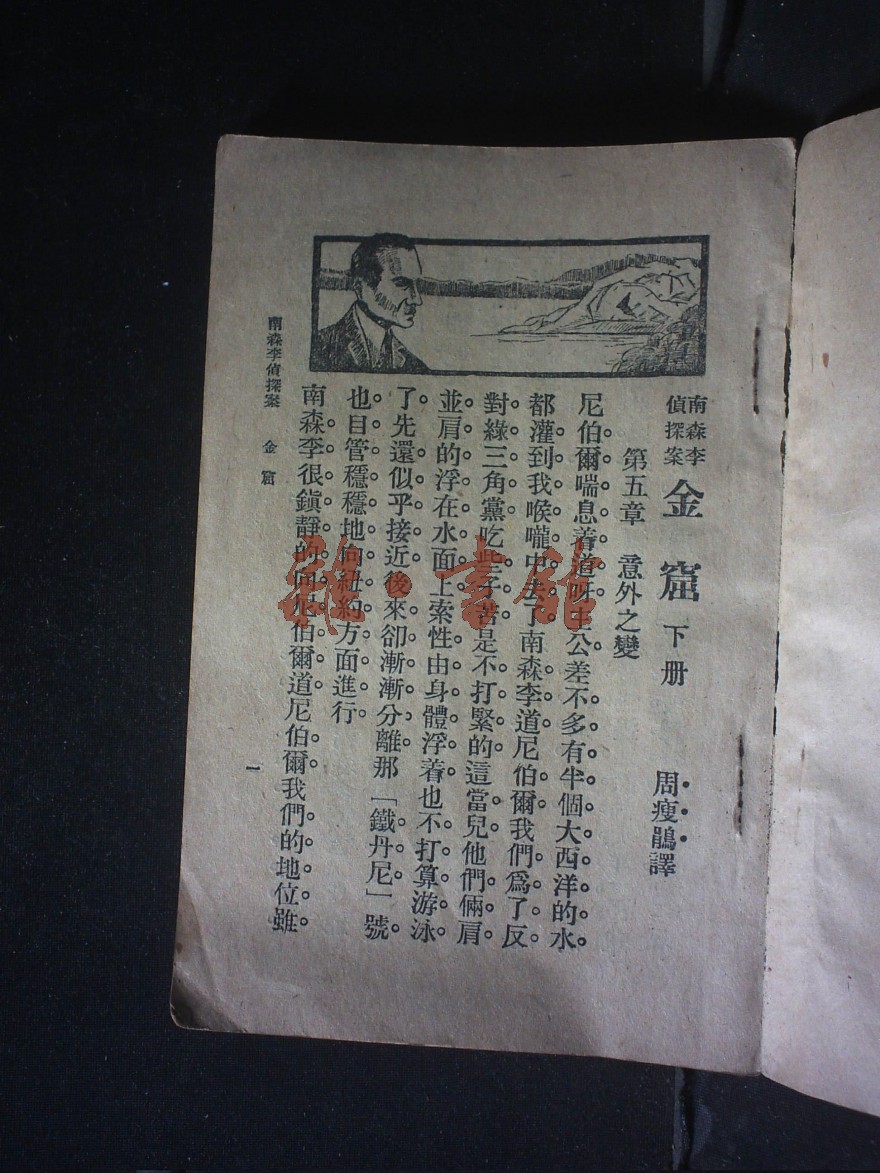 南森李
偵探案
金窟 下册
周瘦鵑譯
第五章 意外之變
尼伯爾喘息着道呀主公差不多有半個大西洋的水
都灌到我喉嚨中去了南森李道尼伯爾我們爲了反
對綠三角黨吃些子苦是不打緊的這當兒他們倆肩
並肩的浮在水面上索性由身體浮着也不打算游泳
了先還似乎接近後來卻漸漸分離那「鐵丹尼」號
也自管穩穩地向紐約方面進行
南森李很鎭靜的向尼伯爾道尼伯爾我們的地位雖
南森李偵探案 金窟
一
雜·書館